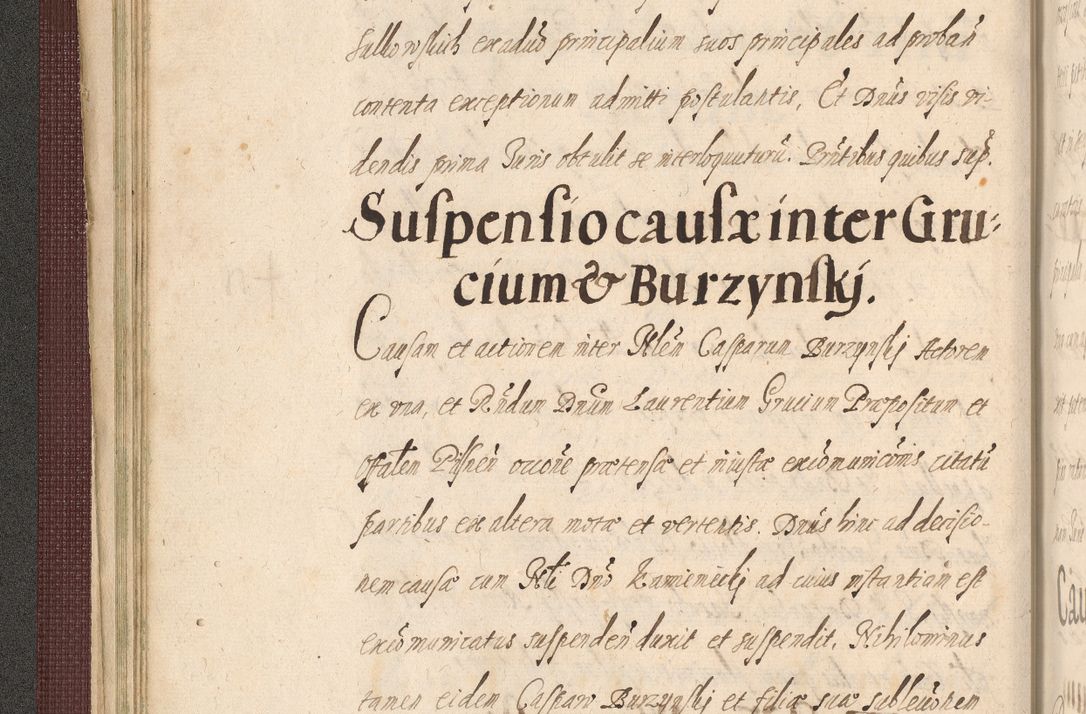 Sulkowskich ex aduo principalium suos principales ad proban̄
contenta exceptionum admitti postulantis, Et Dn̄us visis vi-
dendis prima Iuris obtulit se interloquuturū. Prn̄tibus quibus sup̄.
Suſpenſio cauſæ inter Gru-
cium & Burzynſkj.
Causam et actionem inter Nlēn Casparum Burzynskj Actorem
ex vna, et Rn̄dum Dn̄um Laurentium Grucium Præpositum et
Offālen Pilsnēn occōne prætensæ et iniustæ excōmunicōnis citatū
partibus ex altera motæ et vertentis. Dn̄us hinc ad decisio-
nem causæ cum Nli Dn̄o Kamieneckj ad cuius instantiam est
excōmunicatus suspenden̄ duxit et suspendit. Nihilominus
tamen eidem Casparo Burzynskj et filiæ suæ subleuōnem